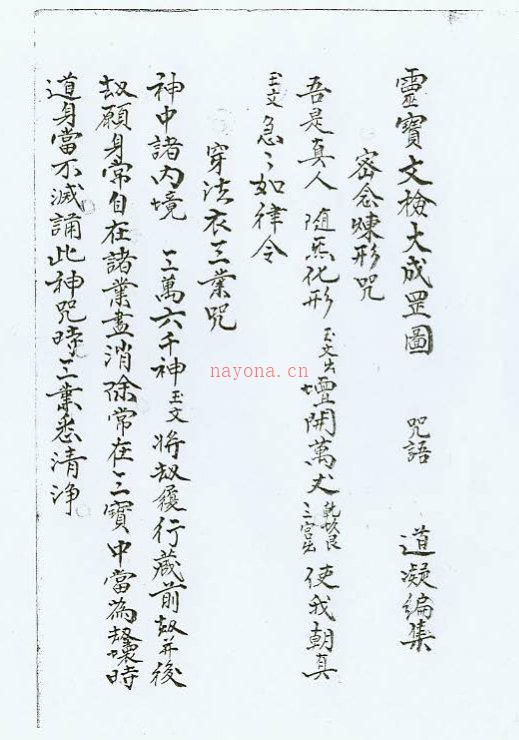 靈寶文檢大成罡圖 咒語 道凝編集
密念煉形咒
吾是真人 隨炁化形 玉文出壇開萬丈 乾坎艮三宮出 使我朝真
玉文 急〻如律令
穿法衣三業咒
神中諸內境 三萬六千神 玉文 將劫履行藏前劫并後
劫願身常自在諸業盡消除常在三寶中當為劫壞時
道身當不滅誦此神咒時三業悉清淨
nayona.cn